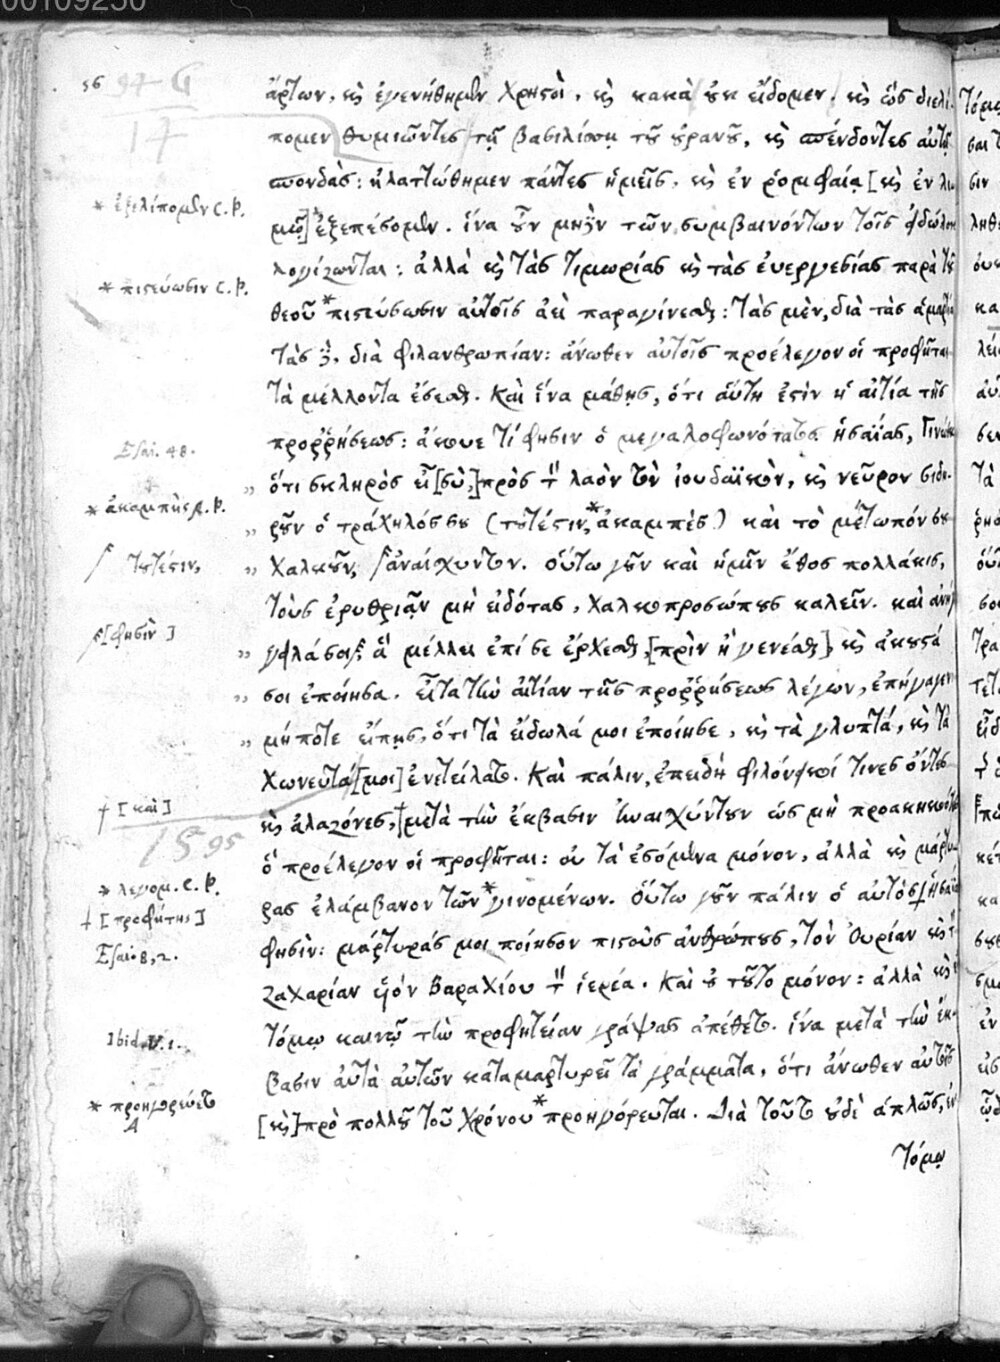 00109250
56 94 G
14
ἄρτων, καὶ ἐγενήθημεν χρηστοὶ, καὶ κακὰ οὐκ εἴδομεν. καὶ ὡς διελί-
πομεν θυμιῶντες τῇ βασιλίσσῃ τοῦ οὐρανοῦ, καὶ σπένδοντες αὐτῇ
σπονδάς: ἠλαττώθημεν πάντες ἡμεῖς, καὶ ἐν ῥομφαίᾳ [καὶ ἐν λι-
* ἐξελίπομεν C. P.
μῷ] *ἐξεπέσομεν. ἵνα οὖν μηδὲν τῶν συμβαινόντων τοῖς εἰδώλοις
λογίζωνται: ἀλλὰ καὶ τὰς τιμωρίας καὶ τὰς εὐεργεσίας παρὰ τοῦ
* πιστεύωσιν C. P.
θεοῦ *πιστεύσωσιν αὐτοῖς ἀεὶ παραγίνεσθαι: τὰς μὲν, διὰ τὰς ἁμαρτίας
τὰς δὲ, διὰ φιλανθρωπίαν: ἄνωθεν αὐτοῖς προέλεγον οἱ προφῆται
τὰ μέλλοντα ἔσεσθαι. Καὶ ἵνα μάθῃς, ὅτι αὕτη ἐστὶν ἡ αἰτία τῆς
προῤῥήσεως: ἄκουε τί φησιν ὁ μεγαλοφωνότατος ἡσαΐας, Γινώσκω
Esai. 48.
„ ὅτι σκληρὸς εἶ [σὺ,] πρὸς τὸν λαὸν τὸν ἰουδαϊκὸν, καὶ νεῦρον σιδη-
* ἀκαμπὴς A. P.
„ ροῦν ὁ τράχηλός σου (τουτέστιν, *ἀκαμπὲς) καὶ τὸ μέτωπόν σου
τουτέστιν,
„ χαλκοῦν, ἀναίσχυντον. οὕτω γοῦν καὶ ἡμῖν ἔθος πολλάκις,
τοὺς ἐρυθριᾷν μὴ εἰδότας, χαλκοπροσώπους καλεῖν. καὶ ἀνήγ
[φησὶν]
„ γειλά σοι, ἃ μέλλει ἐπί σε ἔρχεσθαι, [πρὶν ἢ γενέσθαι] καὶ ἀκουστά
„ σοι ἐποίησα. Εἶτα τὴν αἰτίαν τῆς προῤῥήσεως λέγων, ἐπήγαγεν
„ μή ποτε εἴπῃς, ὅτι τὰ εἴδωλά μοι ἐποίησε, καὶ τὰ γλυπτά, καὶ τὰ
χωνευτά [μοι] ἐνετείλατο. Καὶ πάλιν, ἐπειδὴ φιλόνεικοί τινες ὄντες
† [καὶ]
καὶ ἀλαζόνες, † μετὰ τὴν ἔκβασιν ἠναισχύντουν ὡς μὴ προακηκοότες
15 95
ὃ προέλεγον οἱ προφῆται: οὐ τὰ ἐσόμενα μόνον, ἀλλὰ καὶ μάρτυ-
* λεγομ. C. P.
ρας ἐλάμβανον τῶν *γινομένων. Οὕτω γοῦν πάλιν ὁ αὐτὸς † ἡσαΐας
† [προφήτης]
φησίν: μάρτυράς μοι ποίησον πιστοὺς ἀνθρώπους, τὸν Οὐρίαν καὶ τὸν
Esai. 8, 2.
ζαχαρίαν υἱὸν Βαραχίου τὸν ἱερέα. Καὶ οὐ τοῦτο μόνον: ἀλλὰ καὶ ἐν
Ibid. v. 1.
τόμῳ καινῷ τὴν προφητείαν γράψας ἀπέθετο. ἵνα μετὰ τὴν ἔκ-
βασιν αὐτὰ αὐτῶν καταμαρτυρεῖ τὰ γράμματα, ὅτι ἄνωθεν αὐτοῖς
* προηγορεύετο A
[καὶ] πρὸ πολλοῦ τοῦ χρόνου *προηγόρευται. Διὰ τοῦτο οὐδὲ ἁπλῶς, ἐν
τόμῳ